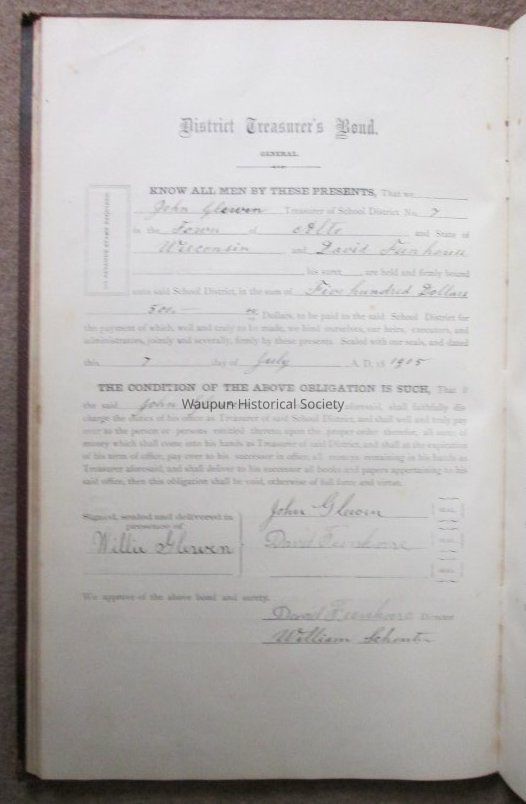 District Treasurer's Bond.
GENERAL.
KNOW ALL MEN BY THESE PRESENTS, That we
John Glewen Treasurer of School District No. 7
in the Town of Alto and State of
Wisconsin and David Feenhouse
his surety are held and firmly bound
unto said School District, in the sum of Five hundred Dollars
500 — Dollars, to be paid to the said School District for
the payment of which, well and truly to be made, we bind ourselves, our heirs, executors, and
administrators, jointly and severally, firmly by these presents. Sealed with our seals, and dated
this 7 day of July A. D. 18 1905
THE CONDITION OF THE ABOVE OBLIGATION IS SUCH, That if
the said John aforesaid, shall faithfully dis
Waupun Historical Society
charge the duties of his office as Treasurer of said School District, and shall well and truly pay
over to the person or persons entitled thereto, upon the proper order therefor, all sums of
money which shall come into his hands as Treasurer of said District, and shall at the expiration
of his term of office, pay over to his successor in office, all moneys remaining in his hands as
Treasurer aforesaid, and shall deliver to his successor all books and papers appertaining to his
said office, then this obligation shall be void, otherwise of full force and virtue.
Signed, sealed and delivered in
presence of
John Glewen SEAL
Willie Glewen
David Feenhouse SEAL
SEAL
We approve of the above bond and surety.
David Feenhouse Director
William Schouten